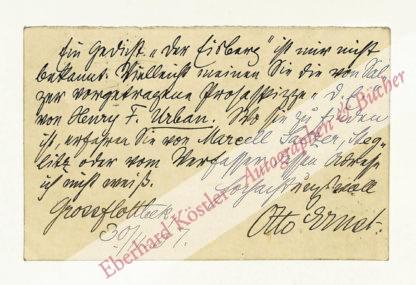 Ein Gedicht „Der Eisberg" ist mir nicht
bekannt. Vielleicht meinen Sie die von Sal-
zer vorgetragene Prosaskizze „D. E."
von Henry F. Urban. Wo sie zu finden
ist, erfahren Sie von Marcell Salzer, Steg-
litz oder vom Verfasser, dessen Adresse
ich nicht weiß.
Hochachtungsvoll
Grossflottbek Otto Ernst.
30/
Eberhard Köstler - Autographen & Bücher